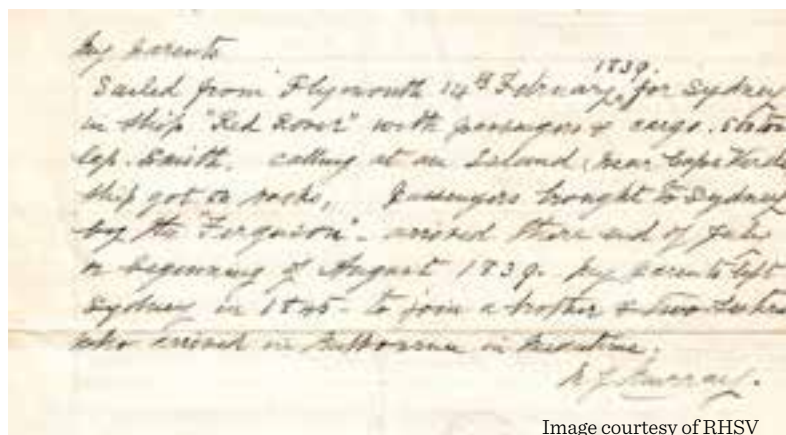 My parents
Sailed from Plymouth 14th February, 1839. for Sydney
in ship "Red Rover" with passengers & cargo.
Cap. Smith. calling at an Island near Cape Verde
ship got on rocks, Passengers brought to Sydney
by the "Ferguson" - arrived there end of July
or beginning of August 1839. My parents left
Sydney in 1845 - to join a brother & two sisters
who arrived in Melbourne in meantime.
Murray.
Image courtesy of RHSV